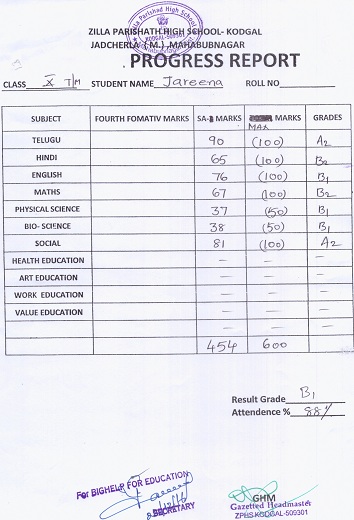 Zilla Parishad High School
KODGAL-509301
ZILLA PARISHATH HIGH SCHOOL- KODGAL
JADCHERLA (M.) ,MAHABUBNAGAR
PROGRESS REPORT
CLASS X T/M STUDENT NAME Jareena ROLL NO
SUBJECT FOURTH FOMATIV MARKS SA- MARKS MARKS MAX GRADES
TELUGU 90 (100) A2
HINDI 65 (100) B2
ENGLISH 76 (100) B1
MATHS 67 (100) B2
PHYSICAL SCIENCE 37 (50) B1
BIO- SCIENCE 38 (50) B1
SOCIAL 81 (100) A2
HEALTH EDUCATION — — —
ART EDUCATION — — —
WORK EDUCATION — — —
VALUE EDUCATION — — —
— — —
454 600
Result Grade B1
Attendence % 88%
For BIGHELP FOR EDUCATION
SECRETARY
GHM
Gazetted Headmaster
ZPHS KODGAL-509301